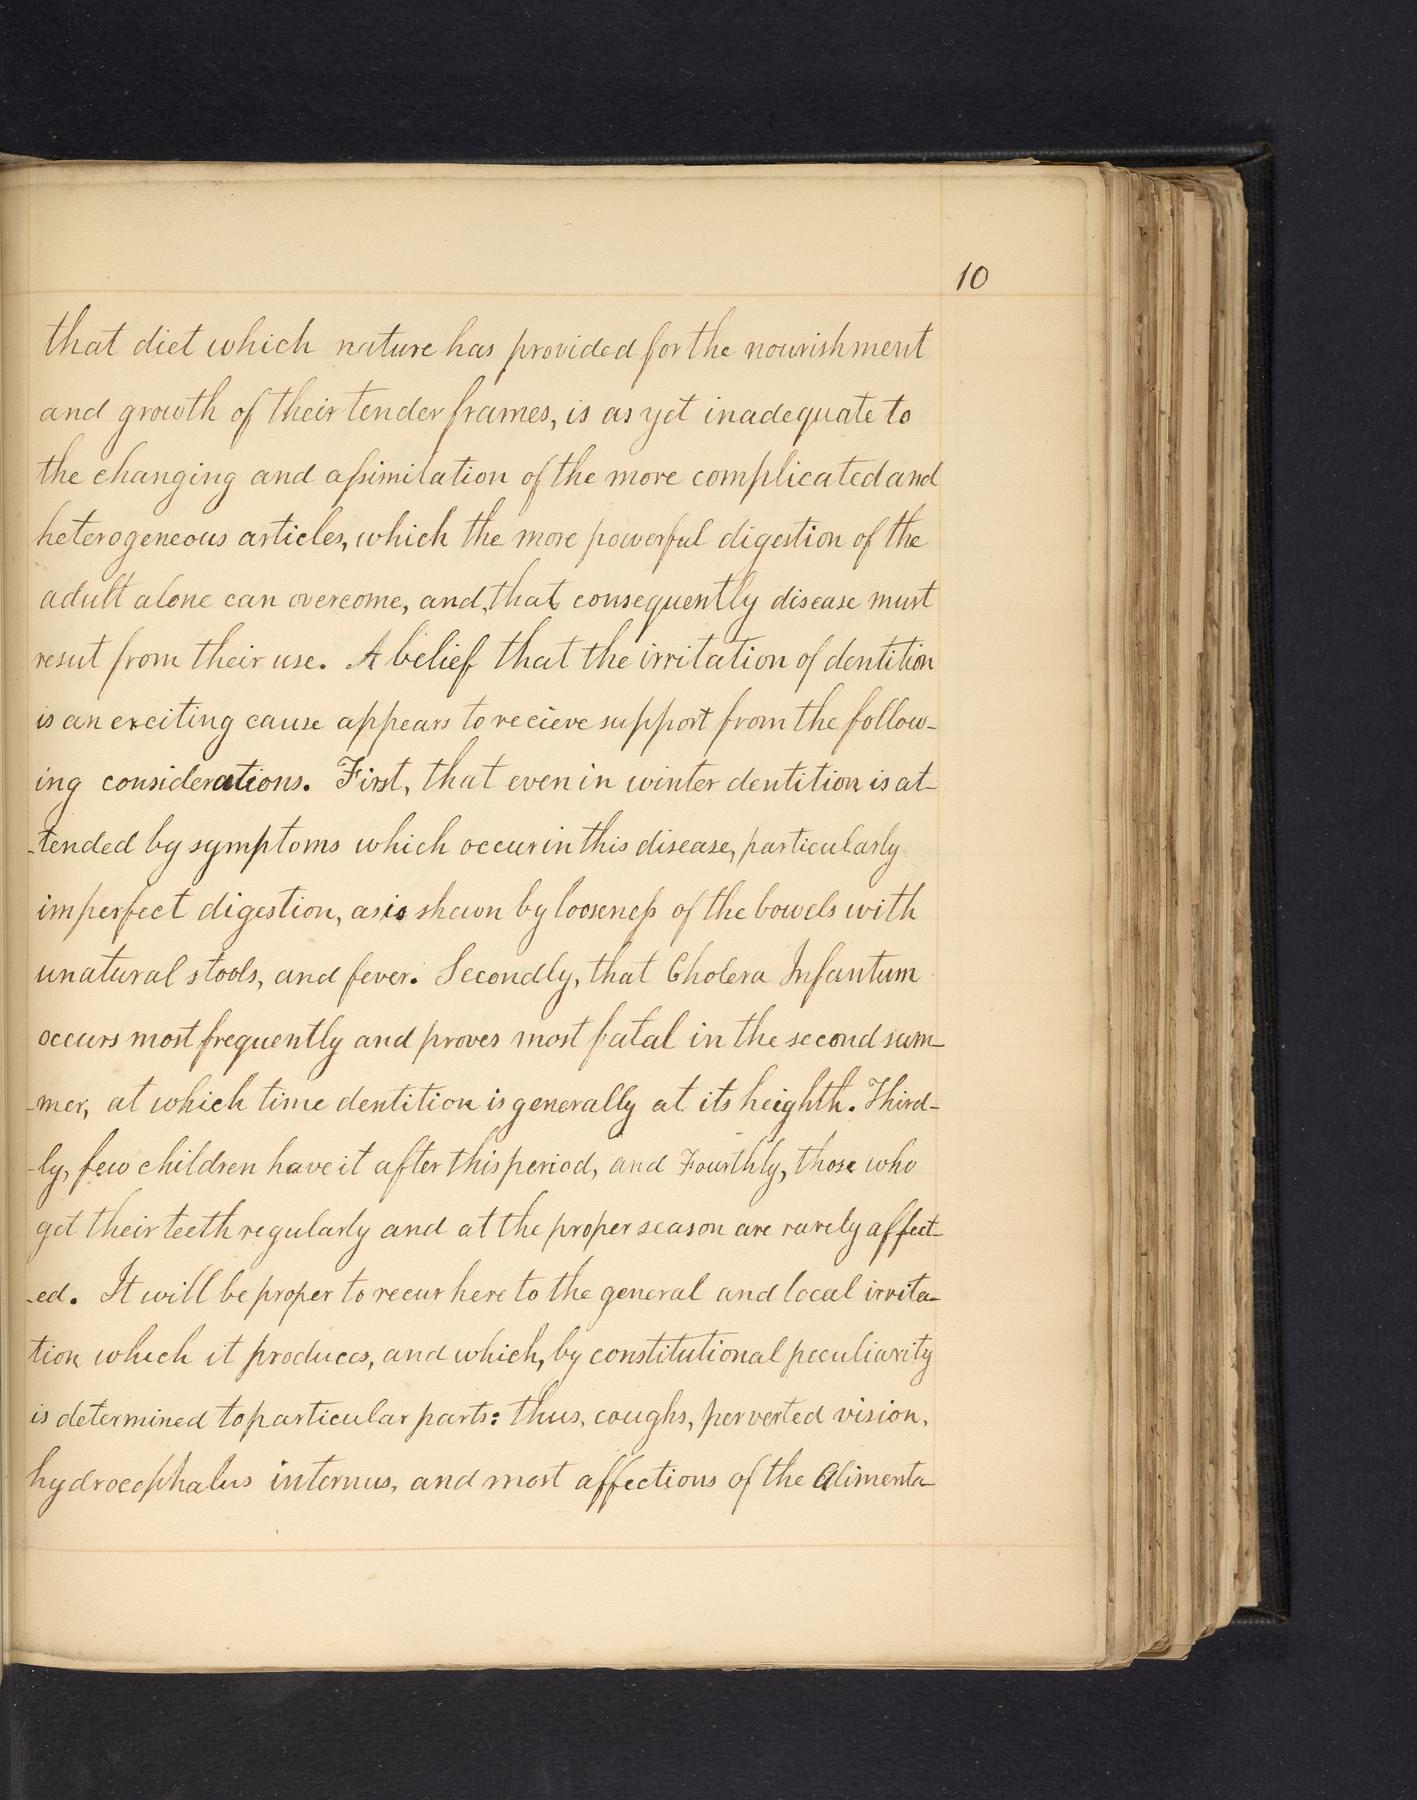 10
that diet which nature has provided for the nourishment
and growth of their tender frames, is as yet inadequate to
the changing and aſsimilation of the more complicated and
heterogeneous articles, which the more powerful digestion of the
adult alone can overcome, and, that consequently disease must
resut from their use. A belief that the irritation of dentition
is an exciting cause appears to recieve support from the follow-
ing considerations. First, that even in winter dentition is at-
-tended by symptoms which occur in this disease, particularly
imperfect digestion, as is shewn by looseneſs of the bowels with
unatural stools, and fever. Secondly, that Cholera Infantum
occurs most frequently and proves most fatal in the second sum-
-mer, at which time dentition is generally at its heighth. Third-
-ly, few children have it after this period, and Fourthly, those who
get their teeth regularly and at the proper season are rarely affect-
-ed. It will be proper to recur here to the general and local irrita-
tion which it produces, and which, by constitutional peculiarity
is determined to particular parts: thus, coughs, perverted vision,
hydrocephalus internus, and most affections of the alimenta-